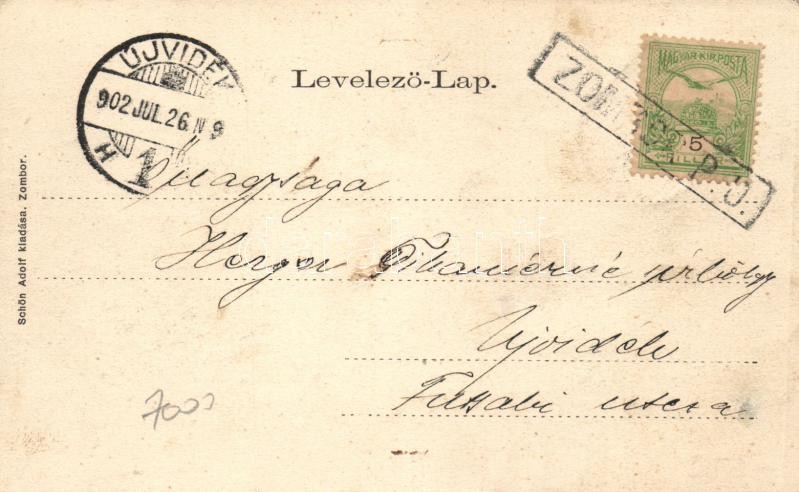 ÚJVIDÉK
902 JUL. 26. N 9
H 1
Levelező-Lap.
MAGYAR KIR. POSTA
5
FILLÉR
ZOMBOR P.U.
Nagysága
Herger úrhölgy
Ujvidék
Futtaki utcza
Schön Adolf kiadása. Zombor.
7000